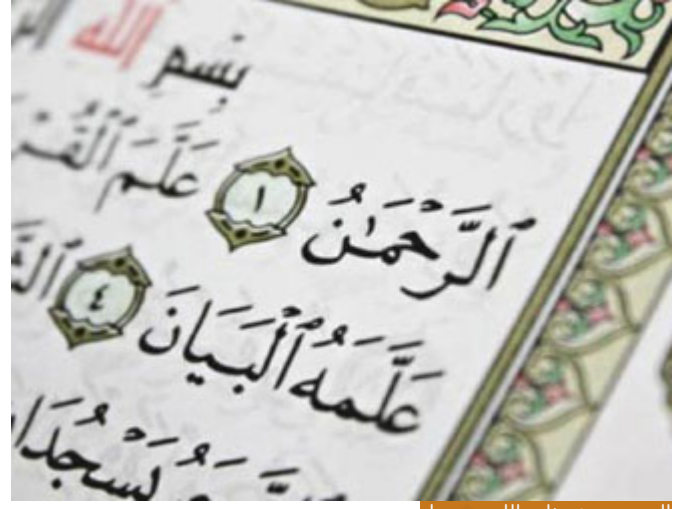 بِسْمِ ٱللَّهِ
ٱلرَّحْمَـٰنُ ١ عَلَّمَ ٱلْقُرْ
عَلَّمَهُ ٱلْبَيَانَ ٤
يَسْجُدَا